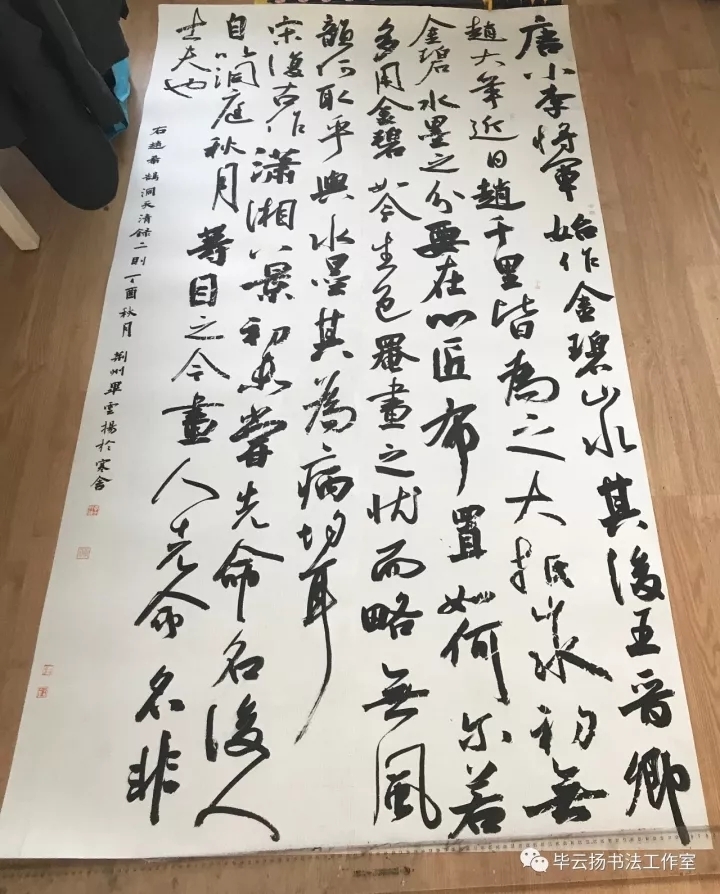 唐小李将軍始作金碧山水其後王晋卿
趙大年近日趙千里皆為之大抵山水初無
金碧水墨之分要在心匠布置如何尔若
多用金碧如今生色罨畫之状而略無風
韻何取乎與水墨其為病均耳
宋復古作瀟湘八景初未嘗先命名後人
自以洞庭秋月等目之今畫人先命名非
士夫也
右趙希鵠洞天清録二則丁酉秋月荊州畢雲揚於寒舍
毕云扬书法工作室